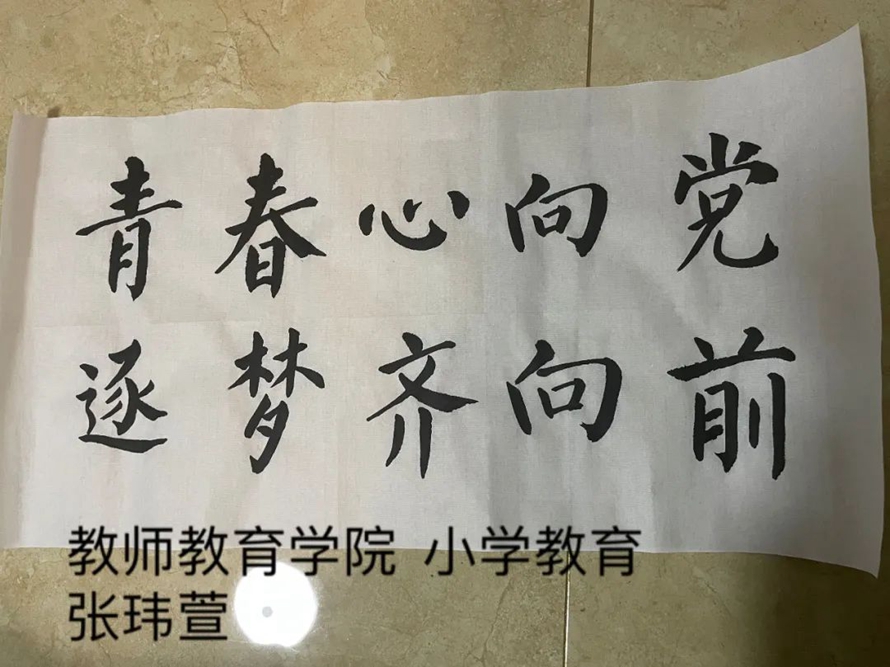 青春心向党
逐梦齐向前
教师教育学院 小学教育
张玮萱